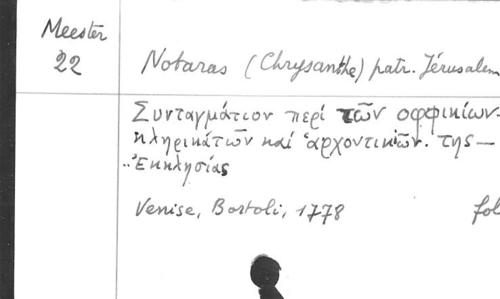 Meester
22
Notaras (Chrysanthe) patr. Jérusalem
Συνταγμάτιον περί τῶν οφφικίων.
κληρικάτῶν καί ἀρχοντικίῶν. της —
..Ἐκκλησίας
Venise, Bortoli, 1778 fol